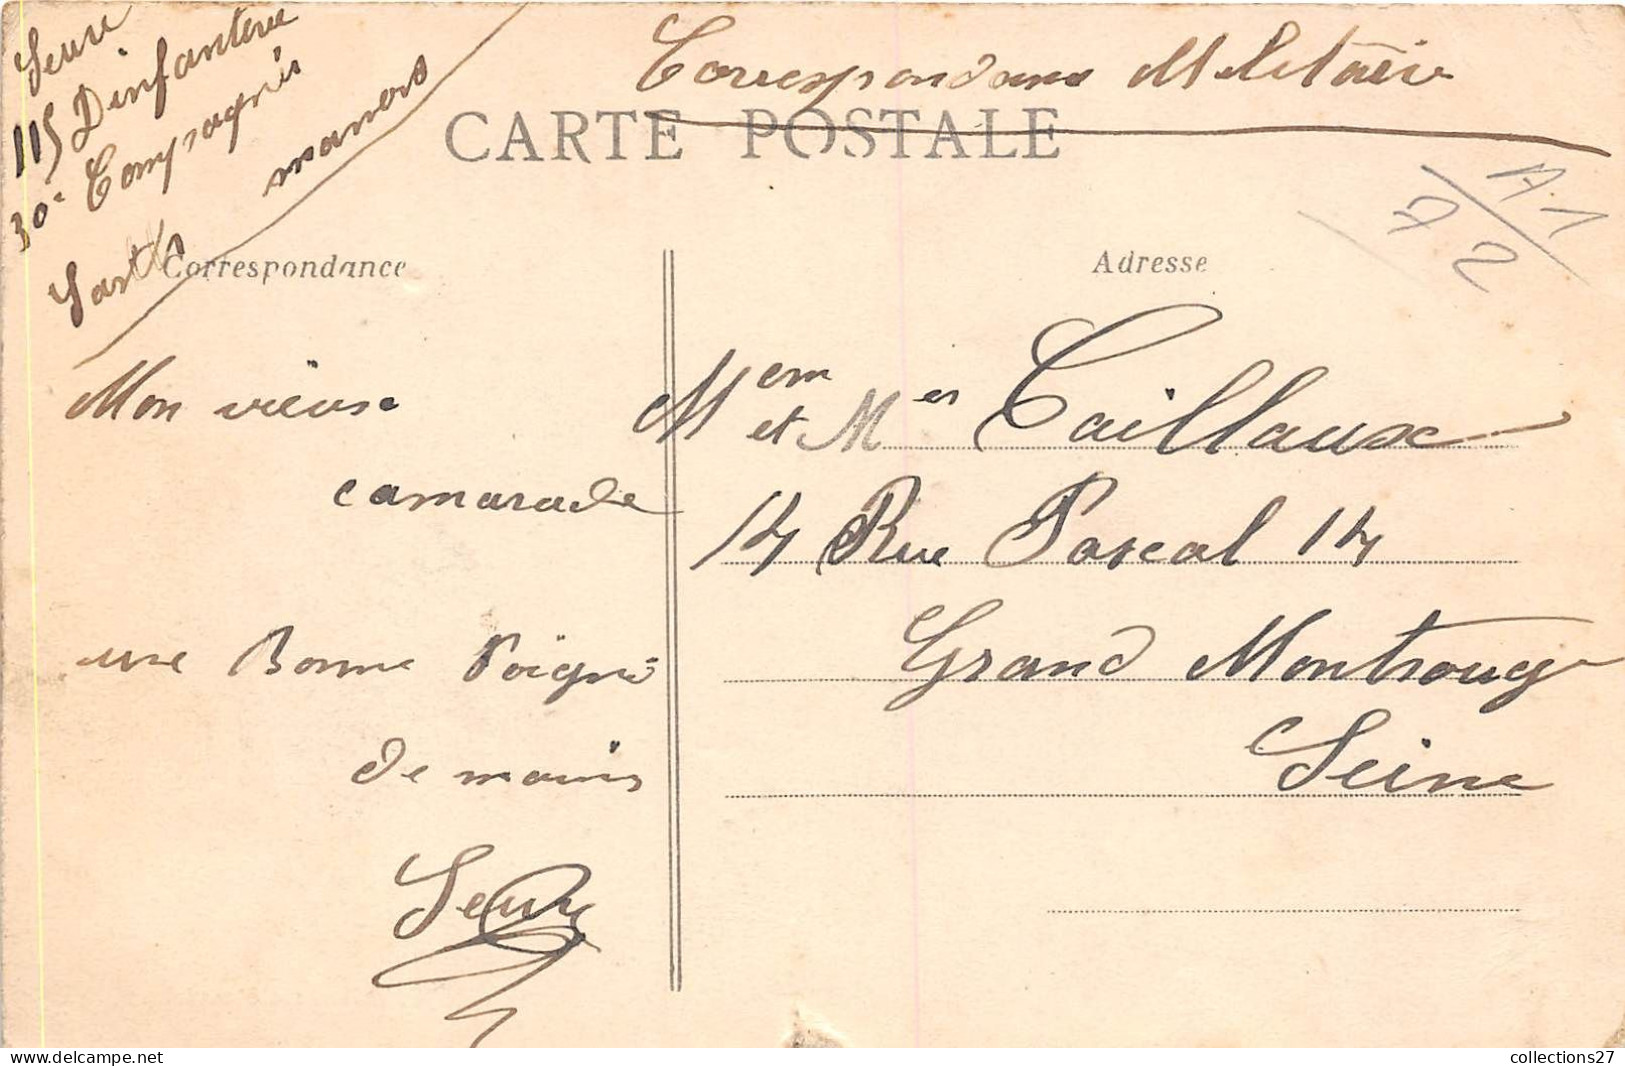 Seure
115 Dinfanterie
30e Compagnie
mamers
Sarthe
Correspondance Militaire
CARTE POSTALE
A.1
72
Correspondance
Adresse
Mon vieux
camarade
une Bonne Poigné
de mains
Seure
Mem et Mer Caillaux
14 Rue Pascal 14
Grand Montrouge
Seine
collections27